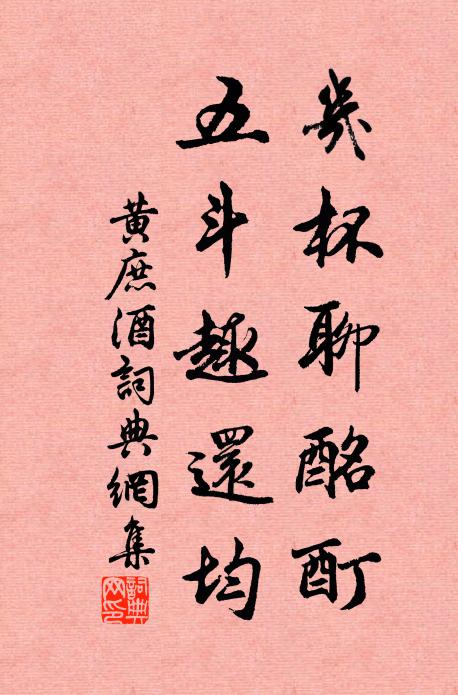 幾杯聊酩酊
五斗趣還均
黃庶酒詞典網集
詞典网印